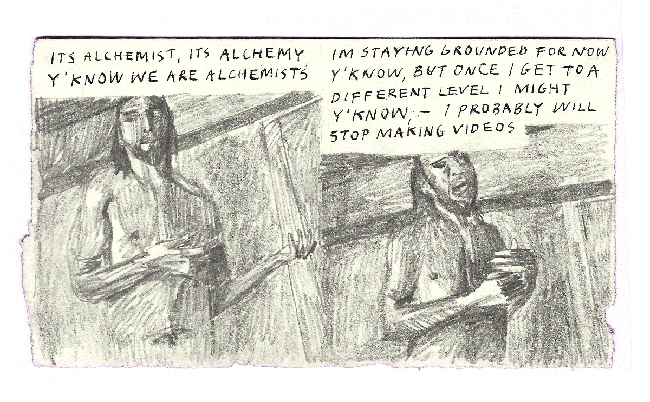 ITS ALCHEMIST, ITS ALCHEMY
Y'KNOW WE ARE ALCHEMISTS
IM STAYING GROUNDED FOR NOW
Y'KNOW, BUT ONCE I GET TO A
DIFFERENT LEVEL I MIGHT
Y'KNOW,- I PROBABLY WILL
STOP MAKING VIDEOS